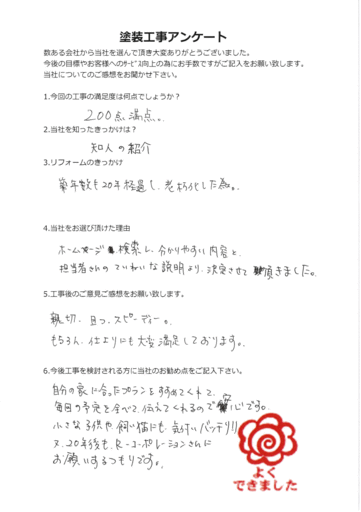 塗装工事アンケート
数ある会社から当社を選んで頂き大変ありがとうございました。
今後の目標やお客様へのサービス向上の為にお手数ですがご記入をお願い致します。
当社についてのご感想をお聞かせ下さい。
1.今回の工事の満足度は何点でしょうか？
200点満点。
2.当社を知ったきっかけは？
知人の紹介
3.リフォームのきっかけ
築年数も20年経過し、老朽化した為。
4.当社をお選び頂けた理由
ホームページ検索し、分かりやすい内容と、
担当者さんのていねいな説明より、決定させて頂きました。
5.工事後のご意見ご感想をお願い致します。
親切、且つ、スピーディー。
もちろん、仕上りにも大変満足しております。
6.今後工事を検討される方に当社のお勧め点をご記入下さい。
自分の家に合ったプランをすすめてくれて、
毎回の予定を全べて、伝えてくれるので安心です。
小さな子供や飼い猫にも、気付いバッチリ!!
又、20年後も、R-コーポレーションさんに
お願いするつもりです。
よく
できました